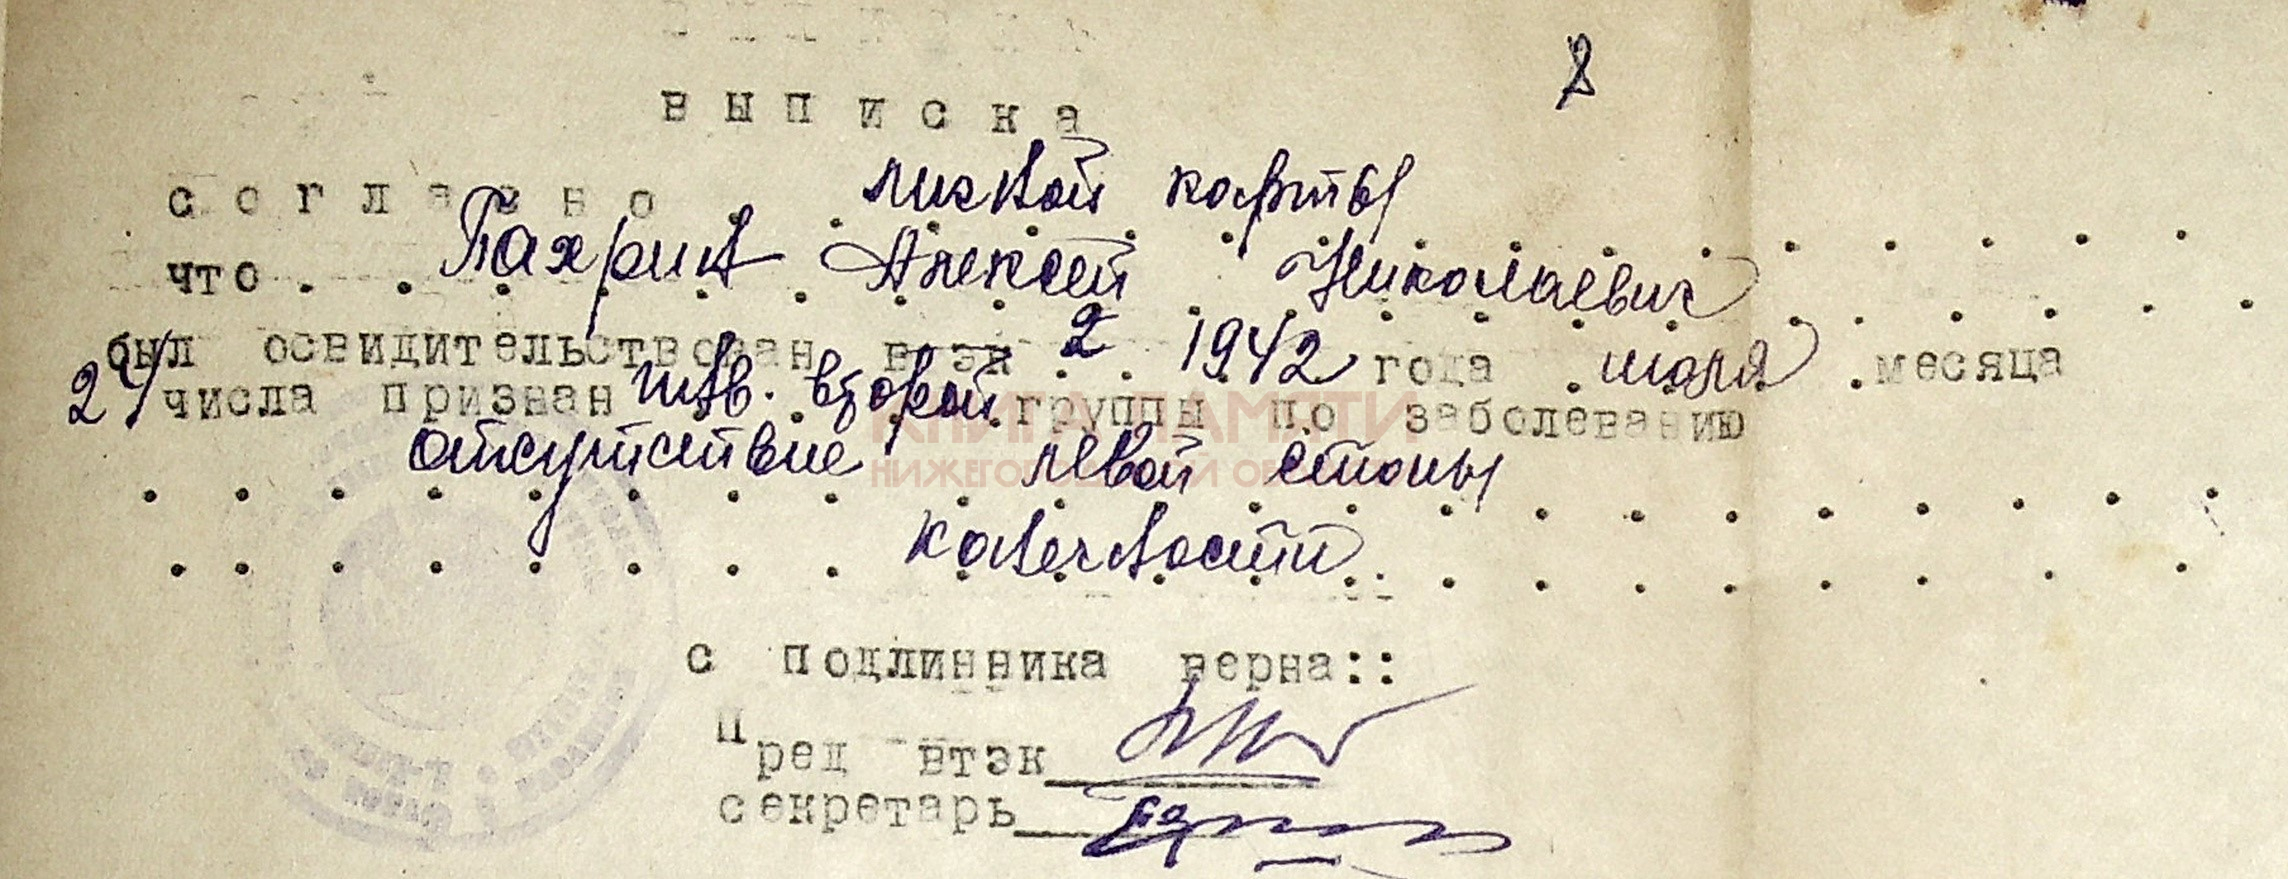 выписка
согласно личной карты
что Пахрин Алексей Николаевич
был освидительствован втэк 2 1942 года июля месяца
24 числа призван инв. второй группы по заболеванию
отсутствие левой стопы
конечности
с подлинника верна::
Пред втэк
секретарь
КНИГА ПАМЯТИ
НИЖЕГОРОДСКОЙ ОБЛАСТИ